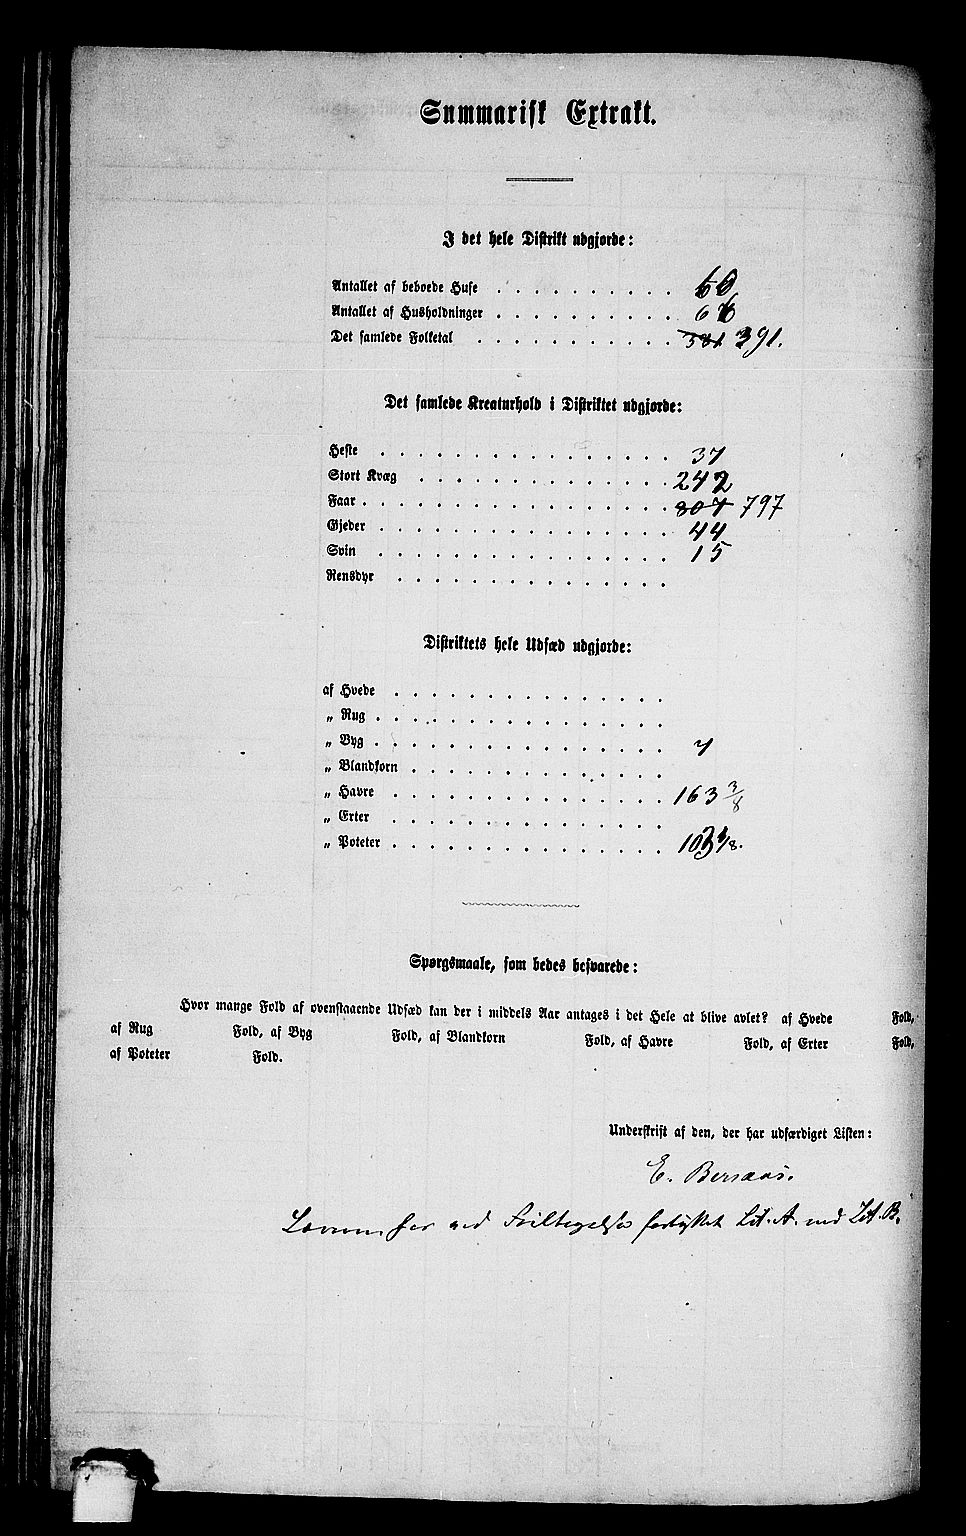 Summarisk Extrakt.
I det hele Distrikt udgjorde:
Antallet af beboede Huse . . . . . . . . . . 60
Antallet af Husholdninger . . . . . . . . . . 66
Det samlede Folketal . . . . . . . . . . . 381 391.
Det samlede Kreaturhold i Distriktet udgjorde:
Heste . . . . . . . . . . . . . . . . 37
Stort Kvæg . . . . . . . . . . . . . . 242
Faar . . . . . . . . . . . . . . . . . 807 797
Gjeder . . . . . . . . . . . . . . . . 44
Svin . . . . . . . . . . . . . . . . 15
Rensdyr . . . . . . . . . . . . . . .
Distriktets hele Udsæd udgjorde:
af Hvede . . . . . . . . . . . . . . .
„ Rug . . . . . . . . . . . . . . . .
„ Byg . . . . . . . . . . . . . . . . 4
„ Blandkorn . . . . . . . . . . . . . .
„ Havre . . . . . . . . . . . . . . . 163 3/8
„ Erter . . . . . . . . . . . . . . .
„ Poteter . . . . . . . . . . . . . . .
Spørgsmaale, som bedes besvarede:
Hvor mange Fold af ovenstaaende Udsæd kan der i middels Aar antages i det Hele at blive avlet? af Hvede Fold,
af Rug Fold, af Byg Fold, af Blandkorn Fold, af Havre Fold, af Erter Fold,
af Poteter Fold.
Underskrift af den, der har udfærdiget Listen:
E. Bersaas.
har ved Lit. A. med Lit. B.